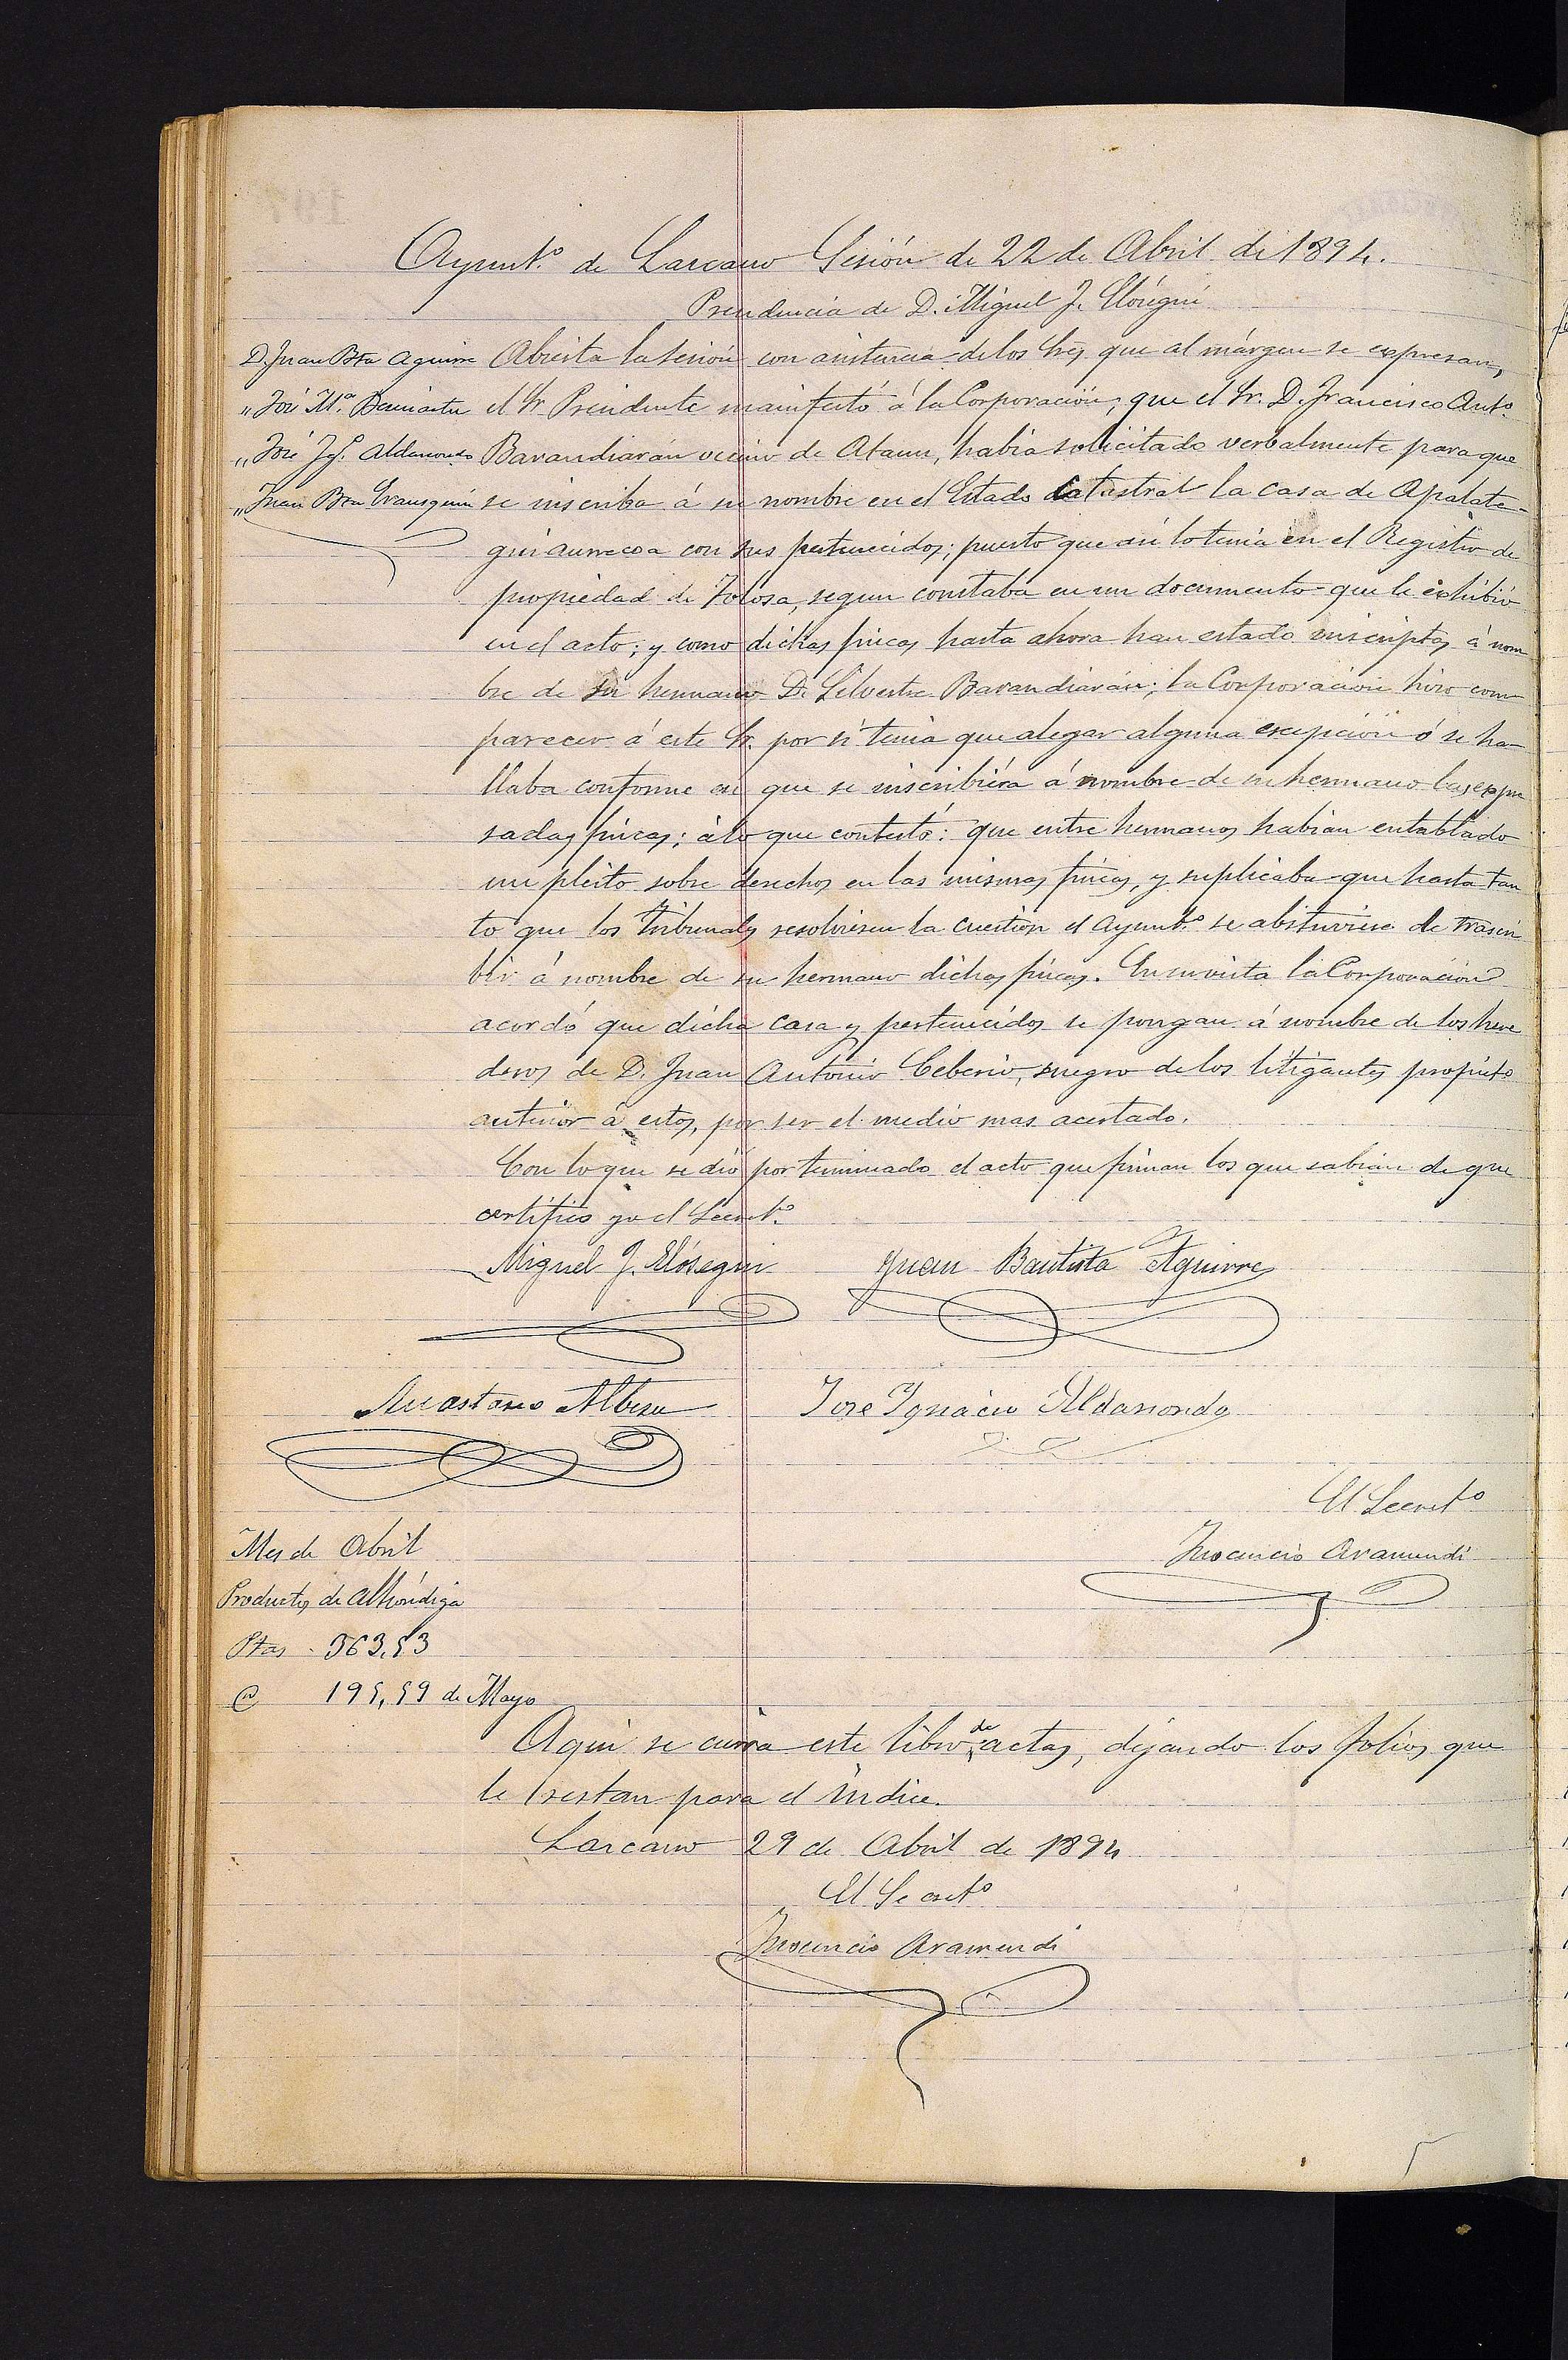 Ayunt.º de Lazcano Sesión de 22 de Abril de 1894.
Presidencia de D. Miguel J. Elósegui
D. Juan Bta Aguirre
" José M.ª Beriartu
" José Ig.º Aldanondo
" Juan Bta Erausquin
Abierta la sesión con asistencia de los Sres que al márgen se expresan,
el Sr. Presidente manifestó á la Corporación, que el Sr. D. Francisco Antº
Barandiarán vecino de Ataun, habia solicitado verbalmente para que
se inscriba á su nombre en el Estado Catastral la casa de Apalate-
guiaurrecoa con sus pertenecidos; puesto que así lo tenia en el Registro de
propiedad de Tolosa, segun constaba en un documento que le exhibió
en el acto; y como dichas fincas hasta ahora han estado inscriptas á nom
bre de su hermano D. Silvestre Barandiarán; la Corporación hizo com
parecer á este Sr. por si tenia que alegar alguna escepción ó se ha-
llaba conforme en que se inscribiera á nombre de su hermano las expre
sadas fincas; á lo que contestó: que entre hermanos habian entablado
un pleito sobre derechos en las mismas fincas, y suplicaba que hasta tan
to que los Tribunales resolviesen la cuestion el Ayuntº se abstuviese de trascri
bir á nombre de su hermano dichas fincas. En su vista la Corporación
acordó que dicha casa y pertenecidos se pongan á nombre de los here
deros de D. Juan Antonio Ceberio, suegro de los litigantes propietº
anterior á estos, por ser el medio mas acertado.
Con lo que se dió por terminado el acto que firman los que sabian de que
certifico yo el Secretº
Miguel J. Elósegui
Juan Bautista Aguirre
Anastasio Albisu
José Ignacio Aldanondo
El Secretº
Inocencio Aramendi
Mes de Abril
Productos de Alhóndiga
Ptas. 363,53
195,59 de Mayo
Aqui se cierra este libro de actas, dejando los folios que
le restan para el índice.
Lazcano 29 de Abril de 1894
El Secretº
Inocencio Aramendi